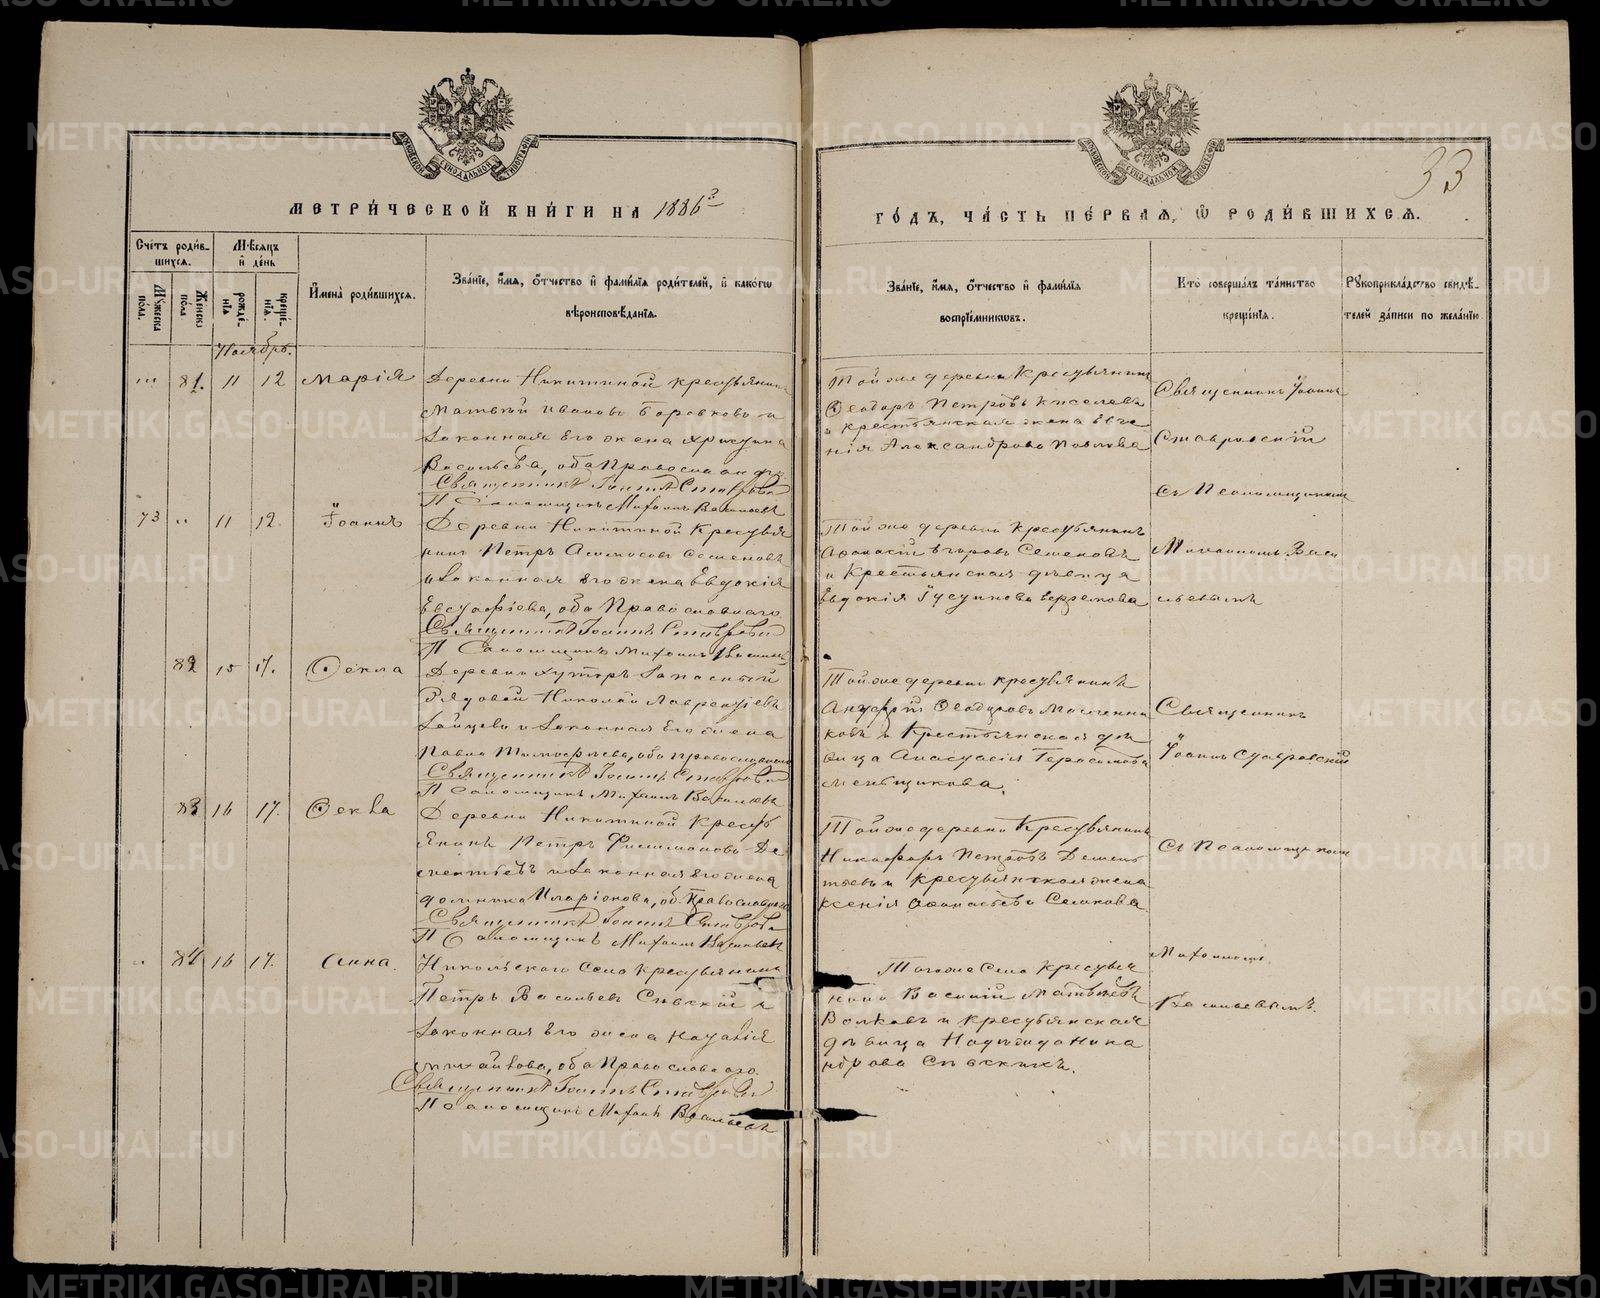 МЕТРИ́ЧЕСКОЙ КНИ́ГИ НА 1886
ГО́ДЪ, ЧА́СТЬ ПЕ́РВАЯ, Ѡ РОДИ́ВШИХСЯ.
33
Сче́тъ роди́в-
шихся.
Мѣ́сяцъ
и҆ де́нь
Му́жеска
по́ла.
Же́нска
по́ла
рожде́-
нїя
креще́-
нїя.
И҆мена̀ роди́вшихся.
Зва́нїе, и҆́мя, ѻ҆́тчество и҆ фами́лїя роди́телей, и҆ како́гѡ
вѣроисповѣ́данїя.
Зва́нїе, и҆́мя, ѻ҆́тчество и҆ фами́лїя
воспрїе́мниковъ.
Кто̀ соверша́лъ та́инство
креще́нїя.
Рꙋкоприкла́дство свидѣ́-
телей за́писи по жела́нїю
Ноябрь.
81. 11 12 Марія
Деревни Никитиной крестьянинъ
Матвѣй Ивановъ Боровковъ и
Законная его жена Христина
Васильева, оба Православн
Священникъ Іоаннъ Ставровскій
Псаломщикъ Михаилъ Васильевъ
Той же деревни Крестьянинъ
Ѳеодоръ Петровъ Киселевъ
и крестьянская жена Евге
нія Александрова Павлова
Священникъ Іоаннъ
Ставровскій
съ Псаломщикомъ
73 11 12. Іоаннъ
Деревни Никитиной Крестья
нинъ Петръ Семеновъ
и Законная его жена Евдокія
Евстафіева, оба Православнаго
Священникъ Іоаннъ Ставровскій
Псаломщикъ Михаилъ Васильевъ
Той же деревни Крестьянинъ
Аѳанасій Егоровъ Семеновъ
и Крестьянская дѣвица
Евдокія Ефремова
Михаиломъ Васи
льевымъ
82 15 17. Ѳекла
Деревни Хуторъ Запасный
Рядовой Николай Лаврентіевъ
Зайцевъ и Законная Его жена
Павла Тимофѣева, оба православнаго
Священникъ Іоаннъ Ставровскій
Псаломщикъ Михаилъ Васильевъ
Той же деревни крестьянинъ
Ануфрій Ѳеодоровъ Масленни
ковъ и Крестьянская дѣ
вица Анастасія Герасимова
Меньщикова.
Священникъ
Іоаннъ Ставровскій
83 16 17. Ѳекла
Деревни Никитиной Кресть
янинъ Петръ Филимоновъ Де
ментьевъ и Законная Его жена
Иларіонова, об. Православнаго
Священникъ Іоаннъ Ставровскій
Псаломщикъ Михаилъ Васильевъ
Той же деревни Крестьянинъ
Никифоръ Петровъ Демень
тьевъ и Крестьянская жена
Ксенія Аѳанасьева Семкова
съ Псаломщикомъ
84 16 17. Анна.
Никольскаго Села Крестьянинъ
Петръ Васильевъ Сѣвскій и
Законная Его жена Наталія
Михайлова, оба Православнаго.
Священникъ Іоаннъ Ставровскій
Псаломщикъ Михаилъ Васильевъ
Того же Села Крестья
нинъ Василій Матвѣевъ
Волковъ и Крестьянская
дѣвица Надежда Ника
норова Сѣвскихъ.
Михаиломъ
Васильевымъ.
METRIKI.GASO-URAL.RU